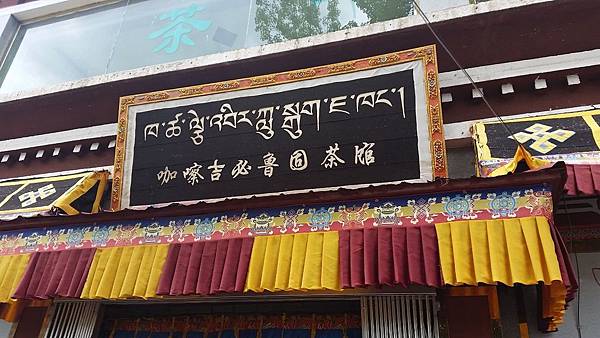 茶
ཁ་ཚ་ལྕེ་འབིར་ཀླུ་སྒུག་ཇ་ཁང་།
咖嚓吉必鲁固茶馆